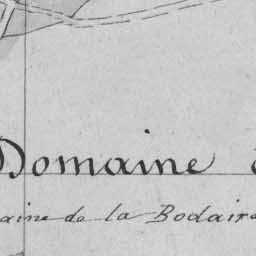 Domaine d
aine de la Bodaire